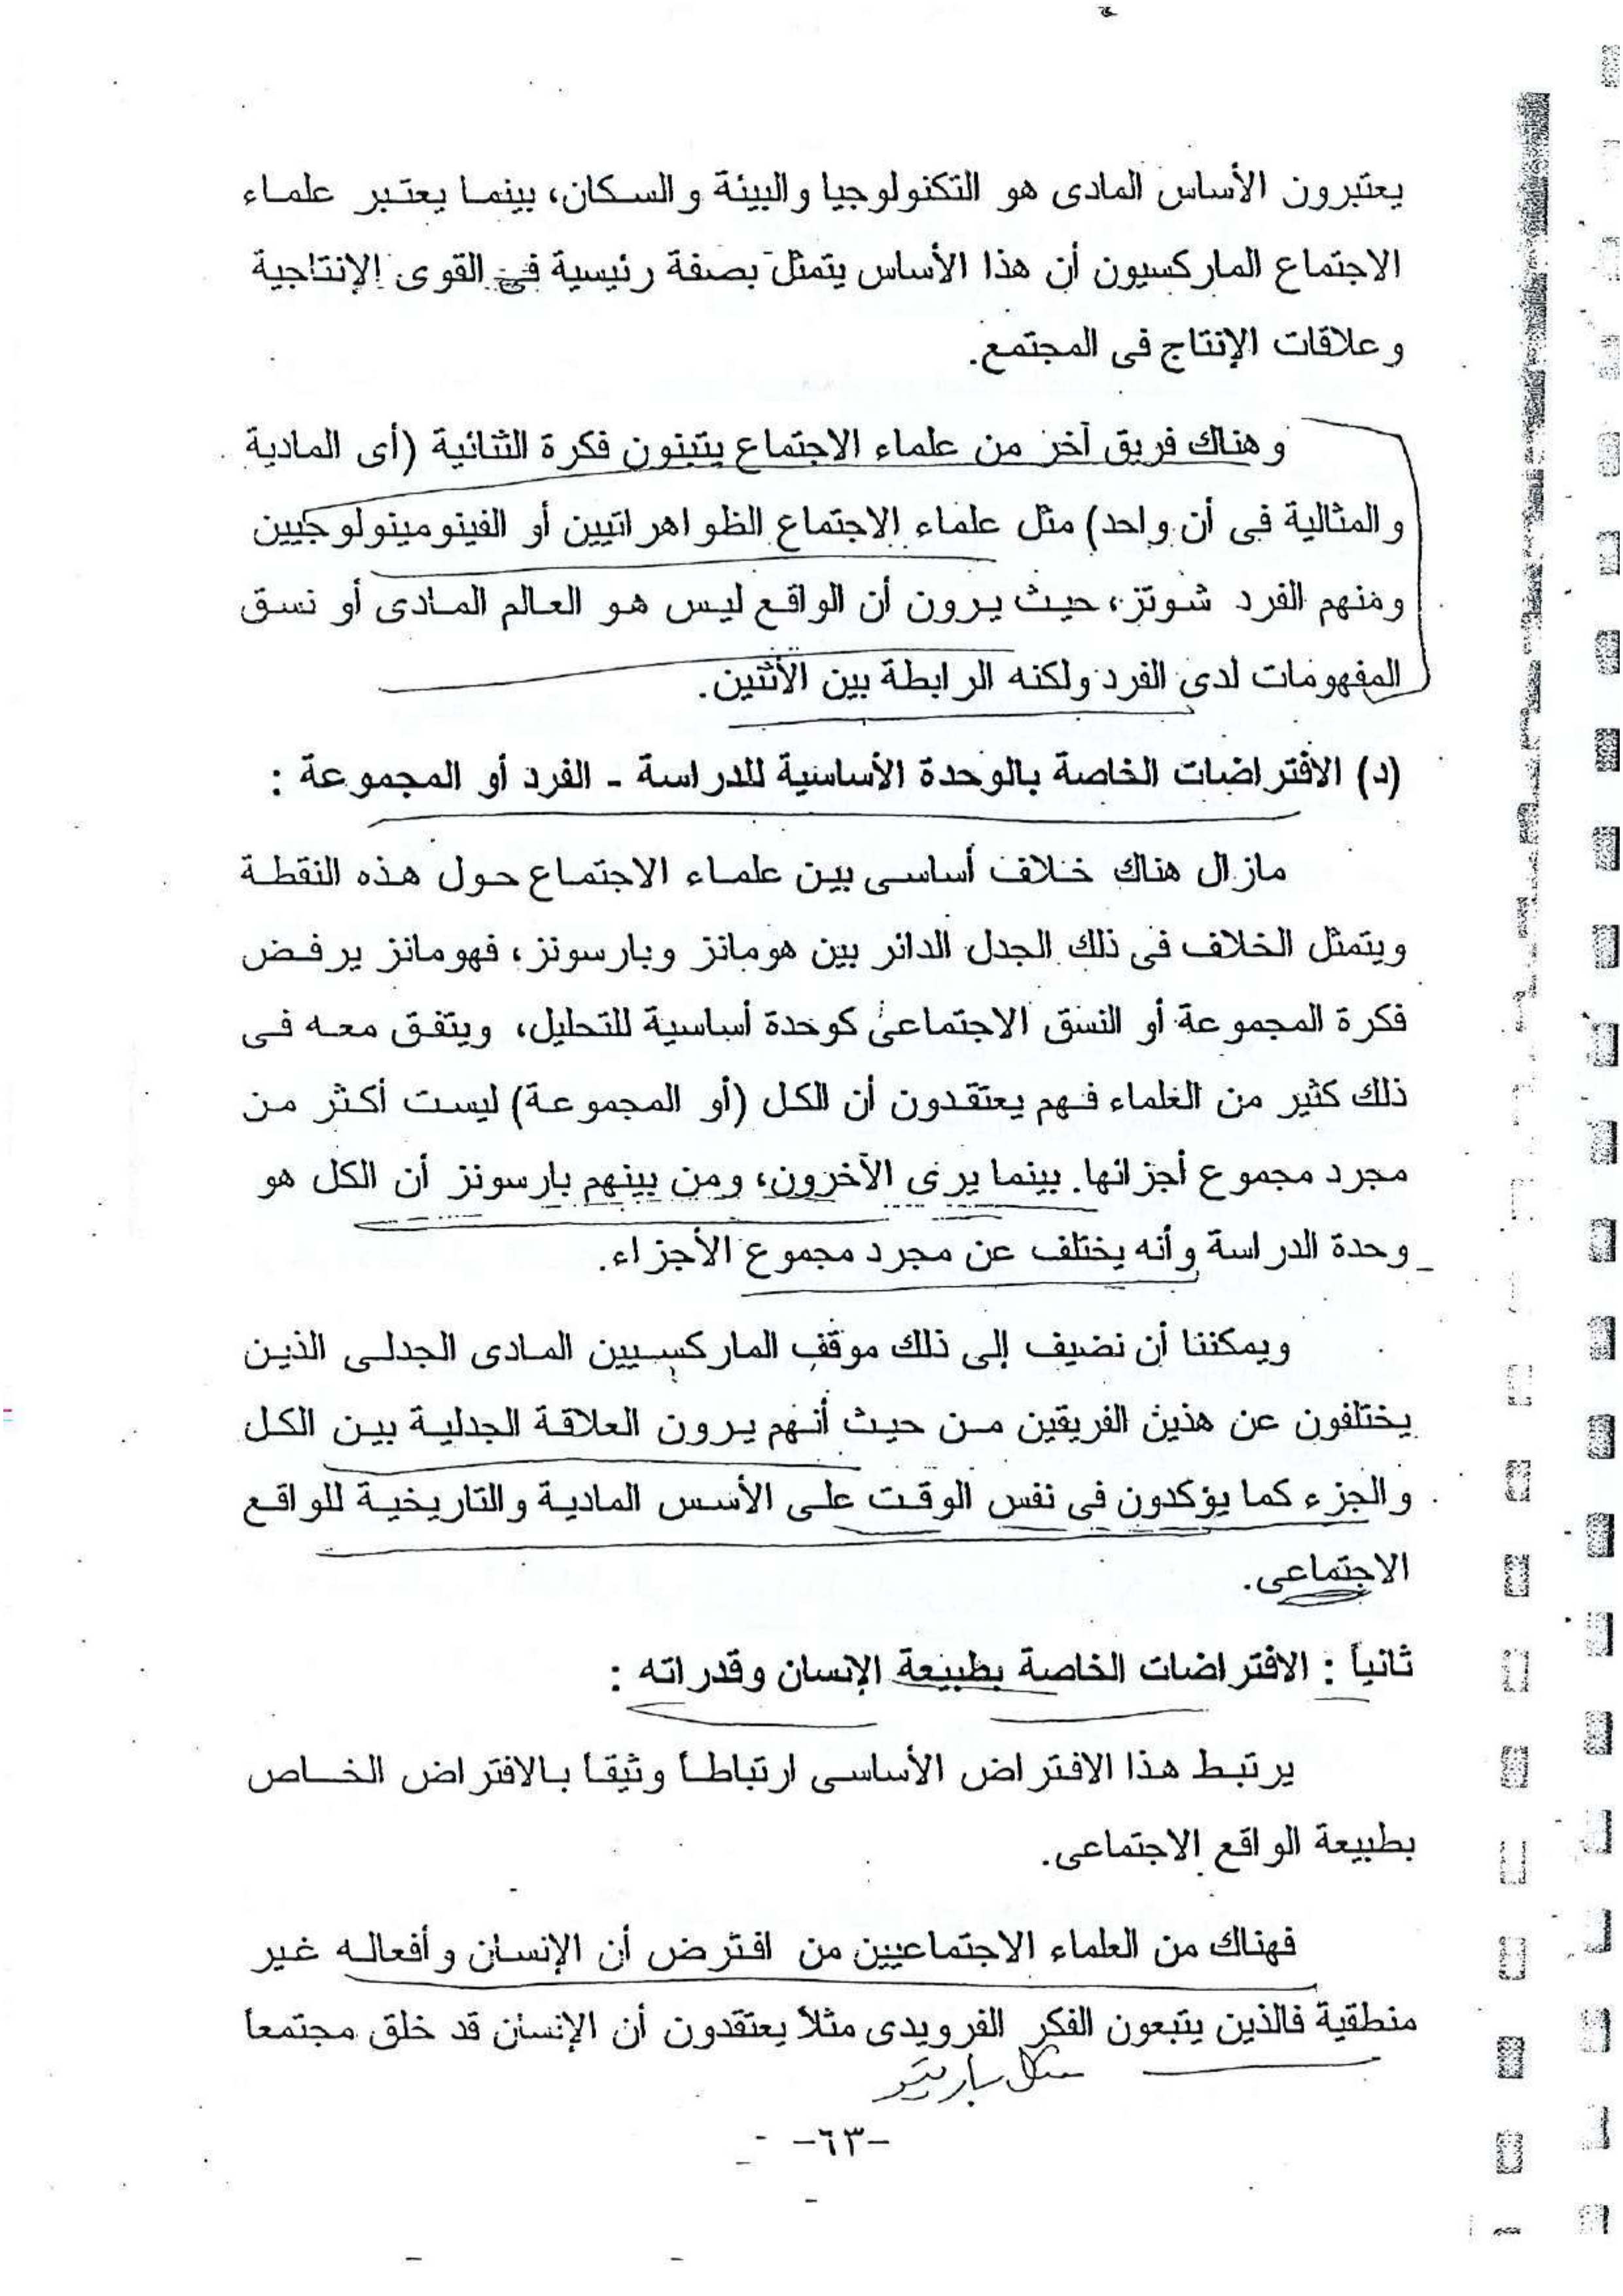 يعتبرون الأساس المادى هو التكنولوجيا والبيئة والسكان، بينما يعتبر علماء
الاجتماع الماركسيون أن هذا الأساس يتمثل بصفة رئيسية فى القوى الإنتاجية
وعلاقات الإنتاج فى المجتمع.
وهناك فريق آخر من علماء الاجتماع يتبنون فكرة الثنائية (أى المادية
والمثالية فى أن واحد) مثل علماء الاجتماع الظواهراتيين أو الفينومينولوجيين
ومنهم الفرد شوتز، حيث يرون أن الواقع ليس هو العالم المادى أو نسق
المفهومات لدى الفرد ولكنه الرابطة بين الأثنين.
(د) الافتراضات الخاصة بالوحدة الأساسية للدراسة - الفرد أو المجموعة :
مازال هناك خلاف أساسى بين علماء الاجتماع حول هذه النقطة
ويتمثل الخلاف فى ذلك الجدل الدائر بين هومانز وبارسونز، فهومانز يرفض
فكرة المجموعة أو النسق الاجتماعى كوحدة أساسية للتحليل، ويتفق معه فى
ذلك كثير من العلماء فهم يعتقدون أن الكل (أو المجموعة) ليست أكثر من
مجرد مجموع أجزائها. بينما يرى الآخرون، ومن بينهم بارسونز أن الكل هو
وحدة الدراسة وأنه يختلف عن مجرد مجموع الأجزاء.
ويمكننا أن نضيف إلى ذلك موقف الماركسيين المادى الجدلى الذين
يختلفون عن هذين الفريقين من حيث أنهم يرون العلاقة الجدلية بين الكل
والجزء كما يؤكدون فى نفس الوقت على الأسس المادية والتاريخية للواقع
الاجتماعى.
ثانياً : الافتراضات الخاصة بطبيعة الإنسان وقدراته :
يرتبط هذا الافتراض الأساسى ارتباطاً وثيقاً بالافتراض الخاص
بطبيعة الواقع الاجتماعى.
فهناك من العلماء الاجتماعيين من افترض أن الإنسان وأفعاله غير
منطقية فالذين يتبعون الفكر الفرويدى مثلاً يعتقدون أن الإنسان قد خلق مجتمعاً
مثل باريتو
-٦٣-